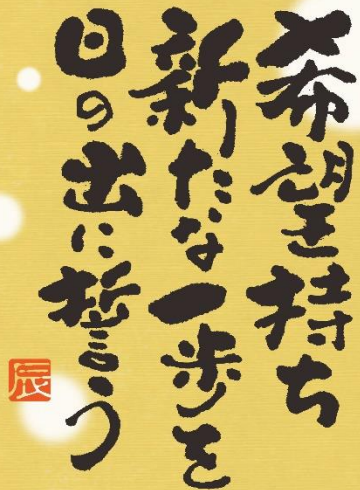 希望持ち
新たな一歩を
日の出に誓う
辰